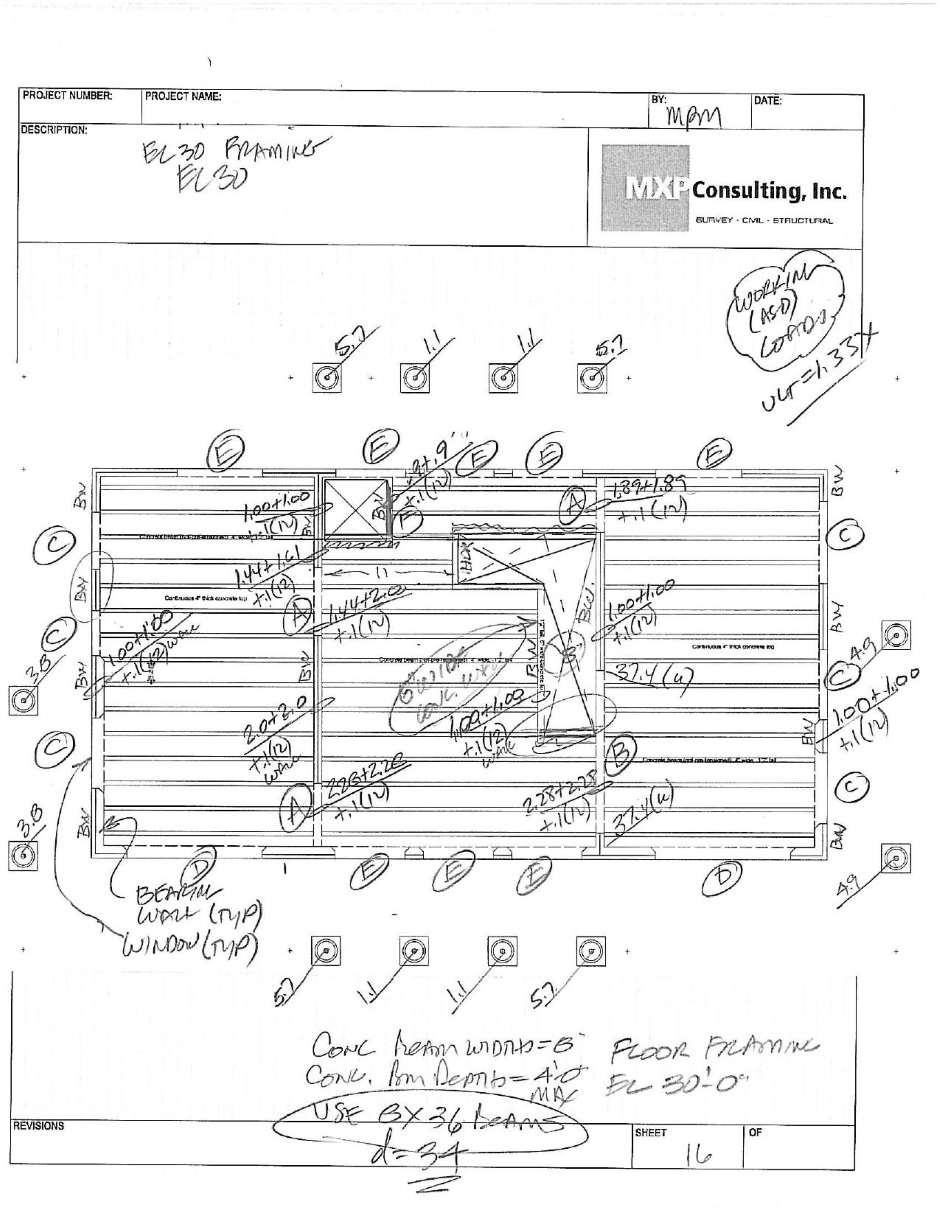 PROJECT NUMBER:
PROJECT NAME:
BY:
MPM
DATE:
DESCRIPTION:
EL 30 FRAMING
EL 30
MXP Consulting, Inc.
SURVEY · CIVIL · STRUCTURAL
WORKING
(ASD)
LOADS
ULT = 1.33X
5.7
1.1
1.1
5.7
E
E
E
E
E
BW
BW
1.00+1.00
+.1(12)
+.1(12)
BW
F
A
1.89+1.89
+.1(12)
C
C
1.44+1.61
+.1(12)
BW
Continuous 4" thick concrete top
11
1.44+2.0
+.1(12)
A
BW
1.00+1.00
+.1(12)
BW
C
1.00+1.00
+.1(12) WALL
BW
3.8
BW
BW
Continuous 4" thick concrete top
C
4.9
37.4(u)
6" WIDE
CONC. WALL
1.00+1.00
+.1(12)
WALL
1.00+1.00
+.1(12)
BW
2.0+2.0
+.1(12)
WALL
C
B
C
2.28+2.28
+.1(12)
A
2.28+2.28
+.1(12)
37.4(u)
BW
BW
3.8
4.9
D
E
E
E
D
BEARING
WALL (TYP)
WINDOW (TYP)
5.7
1.1
1.1
5.7
CONC BEAM WIDTHS = 8"
FLOOR FRAMING
CONC. BM DEPTHS = 4'0"
MAX
EL 30'-0"
USE 8X36 BEAMS
d = 34
REVISIONS
SHEET
16
OF